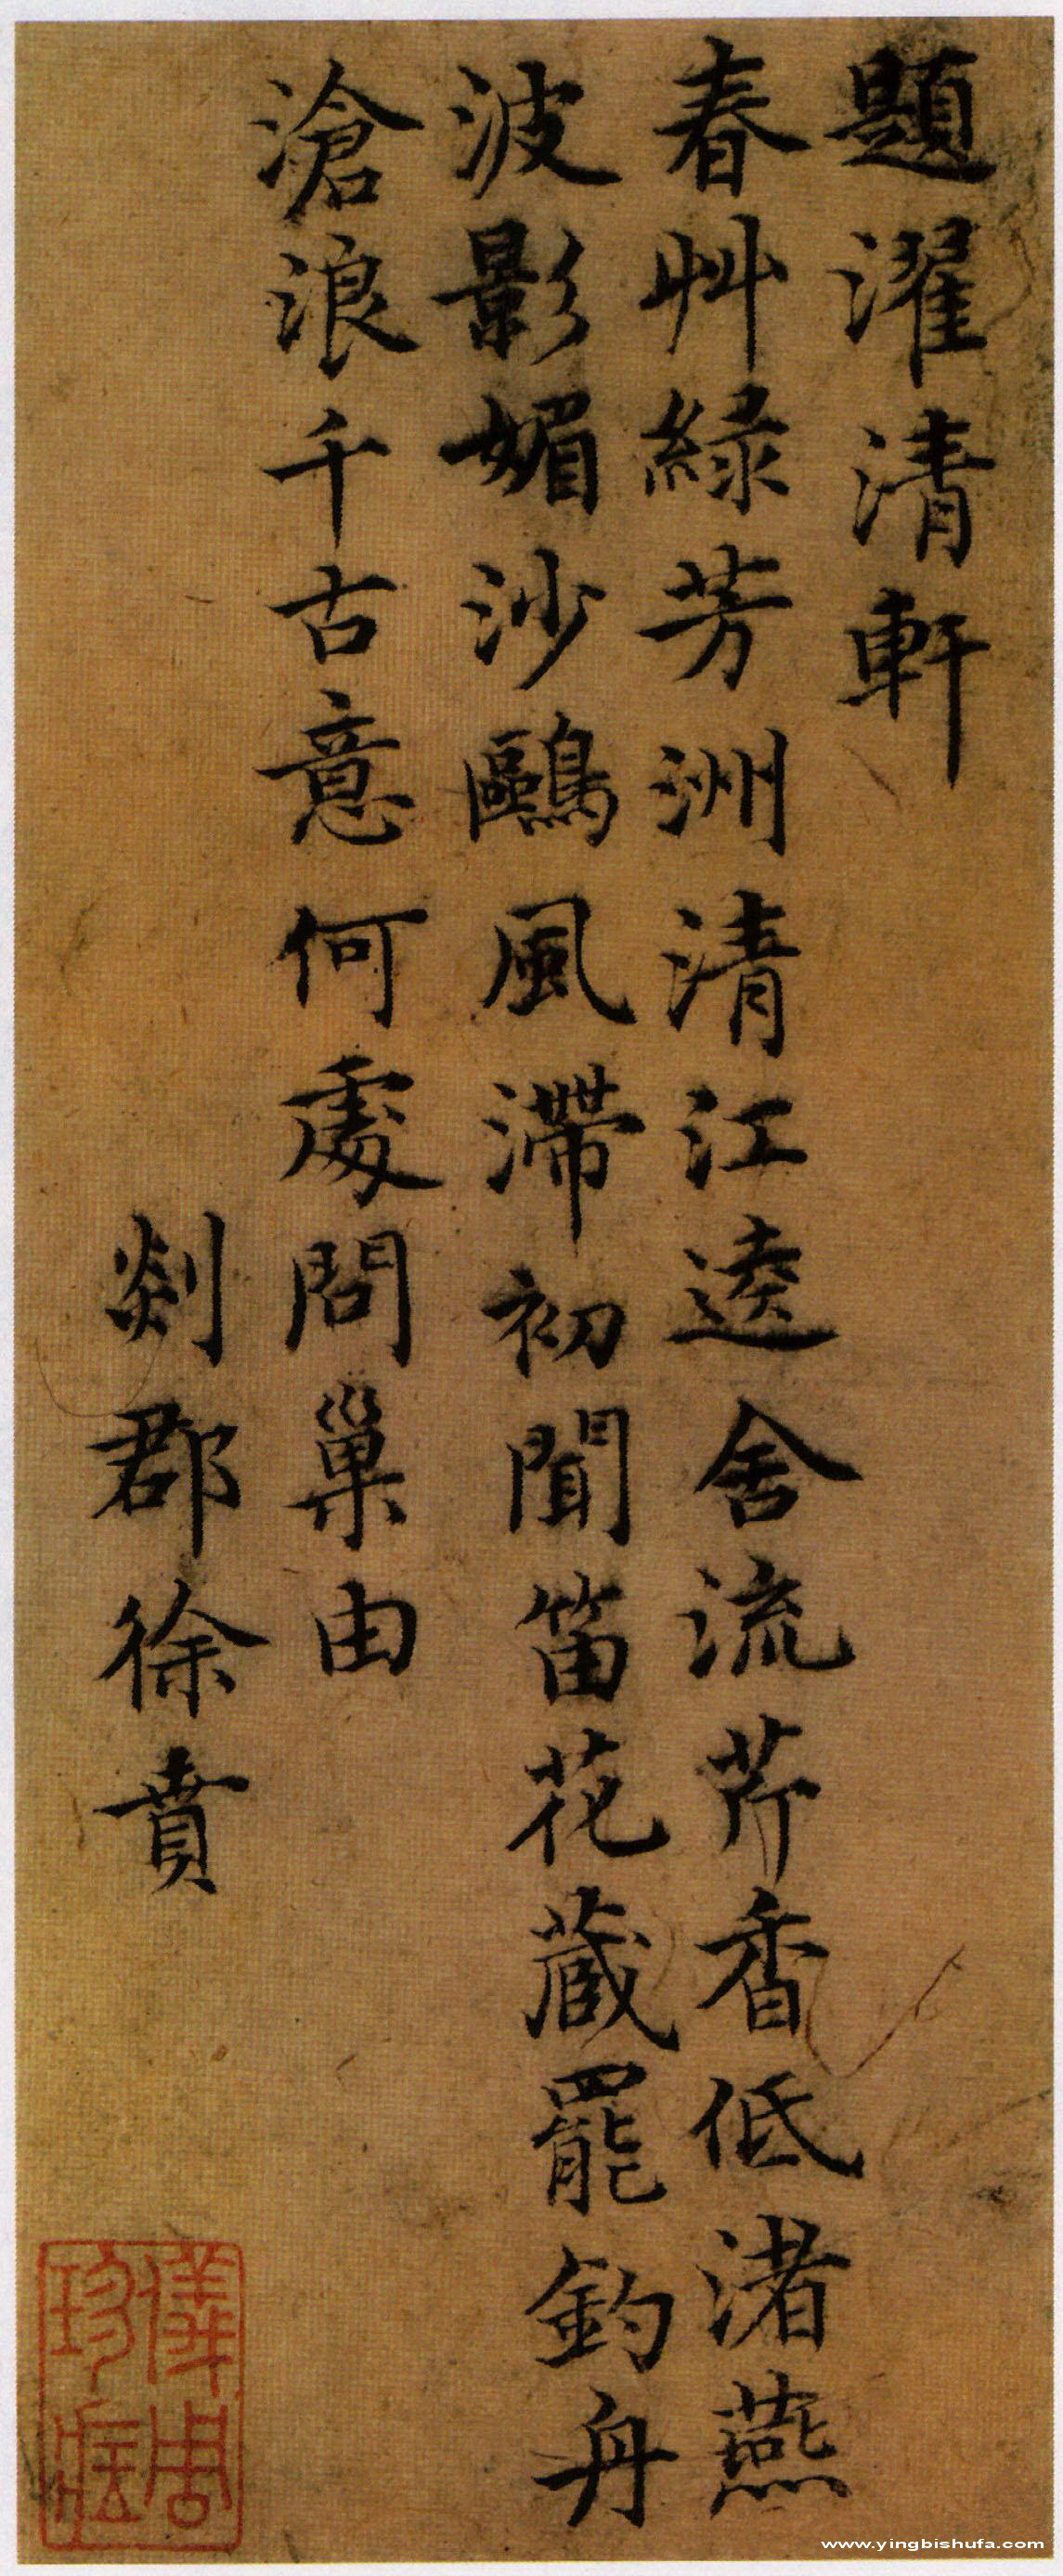 題濯清軒
春艸綠芳洲清江逵舍流芹香低渚燕
波影媚沙鷗風滯初聞笛花藏罷釣舟
滄浪千古意何處問巢由
剡郡徐賁
儀周珍藏
www.yingbishufa.com